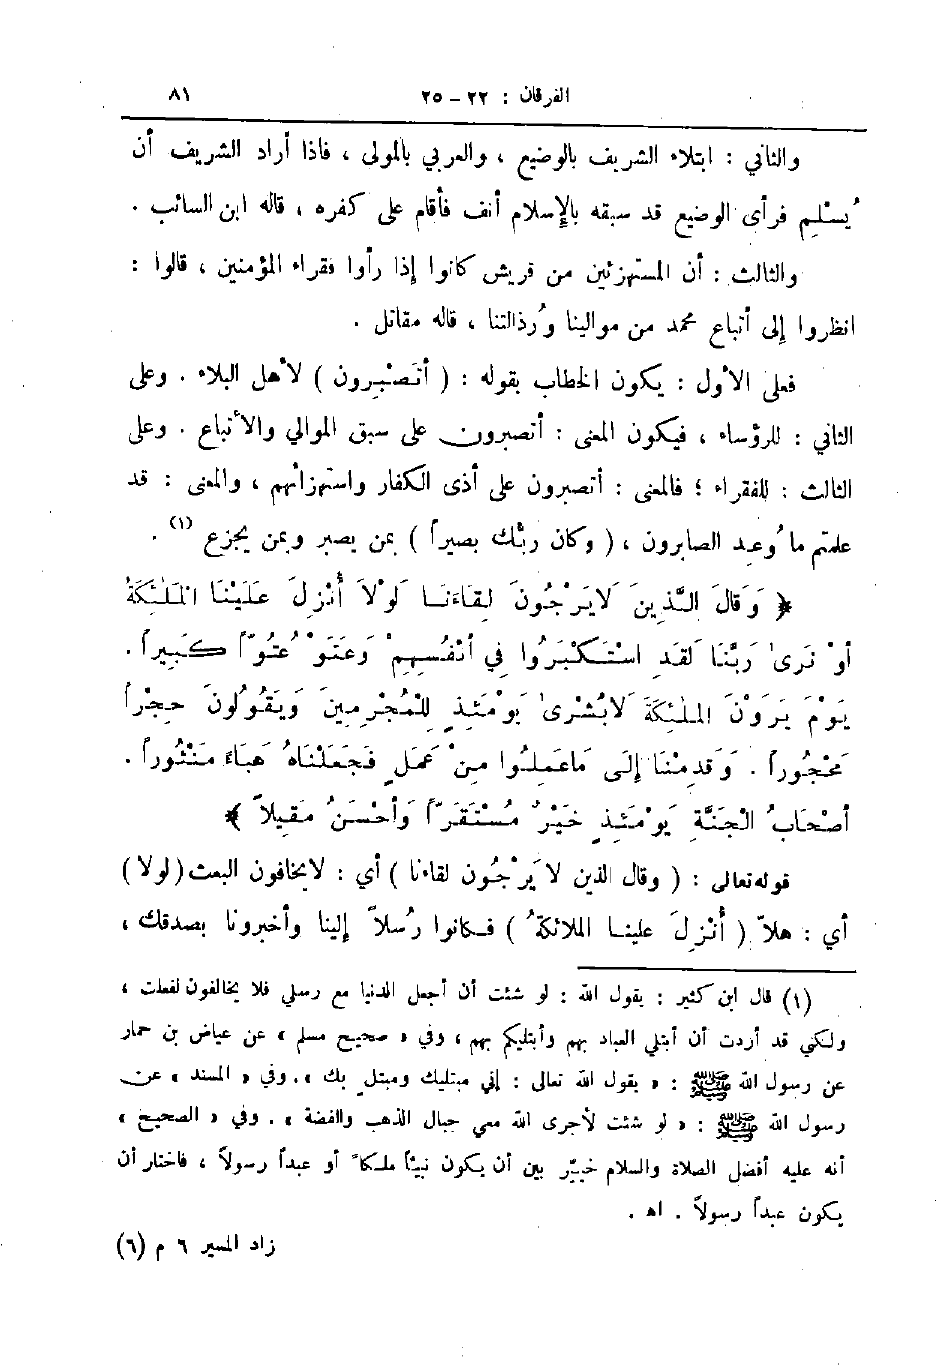 الفرقان : ٢٢ – ٢٥ ٨١
والثاني : ابتلاء الشريف بالوضيع ، والعربي بالمولى ، فاذا أراد الشريف أن
يُسْلِم فرأى الوضيع قد سبقه بالإسلام أنف فأقام على كفره ، قاله ابن السائب .
والثالث : أن المستهزئين من قريش كانوا إذا رأوا فقراء المؤمنين ، قالوا :
انظروا إلى أتباع محمد من موالينا ورُذالتنا ، قاله مقاتل .
فعلى الأول : يكون الخطاب بقوله : ( أتَصْبِرون ) لأهل البلاء . وعلى
الثاني : للرؤساء ، فيكون المعنى : أتصبرون على سبق الموالي والأتباع . وعلى
الثالث : للفقراء ؛ فالمعنى : أتصبرون على أذى الكفار واستهزائهم ، والمعنى : قد
علمتم ما وُعِد الصابرون ، ( وكان ربُّك بصيراً ) بمن يصبر وبمن يجزع (١) .
﴿ وَقَالَ الَّذِينَ لَا يَرْجُونَ لِقَاءَنَا لَوْلَا أُنْزِلَ عَلَيْنَا الْمَلٰئِكَةُ
أَوْ نَرىٰ رَبَّنَا لَقَدِ اسْتَكْبَرُوا فِي أَنْفُسِهِمْ وَعَتَوْ عُتُوّاً كَبِيراً .
يَوْمَ يَرَوْنَ الْمَلٰئِكَةَ لَا بُشْرىٰ يَوْمَئِذٍ لِلْمُجْرِمِينَ وَيَقُولُونَ حِجْراً
مَحْجُوراً . وَقَدِمْنَا إِلَى مَا عَمِلُوا مِنْ عَمَلٍ فَجَعَلْنَاهُ هَبَاءً مَنْثُوراً .
أَصْحَابُ الْجَنَّةِ يَوْمَئِذٍ خَيْرٌ مُسْتَقَرّاً وَأَحْسَنُ مَقِيلاً ﴾
قوله تعالى : ( وقال الذين لا يَرْجُون لقاءنا ) أي : لا يخافون البعث ( لولا )
أي : هلاّ ( أُنْزِلَ علينا الملائكةُ ) فكانوا رُسُلاً إلينا وأخبرونا بصدقك ،
(١) قال ابن كثير : يقول الله : لو شئت أن أجعل الدنيا مع رسلي فلا يخالفون لفعلت ،
ولكني قد أردت أن أبتلي العباد بهم وأبتليكم بهم ، وفي « صحيح مسلم » عن عياض بن حمار
عن رسول الله ﷺ : « يقول الله تعالى : إني مبتليك ومبتلٍ بك » . وفي « المسند » عن
رسول الله ﷺ : « لو شئت لأجرى الله معي جبال الذهب والفضة » . وفي « الصحيح »
أنه عليه أفضل الصلاة والسلام خُيِّر بين أن يكون نبيّاً ملكاً أو عبداً رسولاً ، فاختار أن
يكون عبداً رسولاً . اه .
زاد المسير ٦ م (٦)